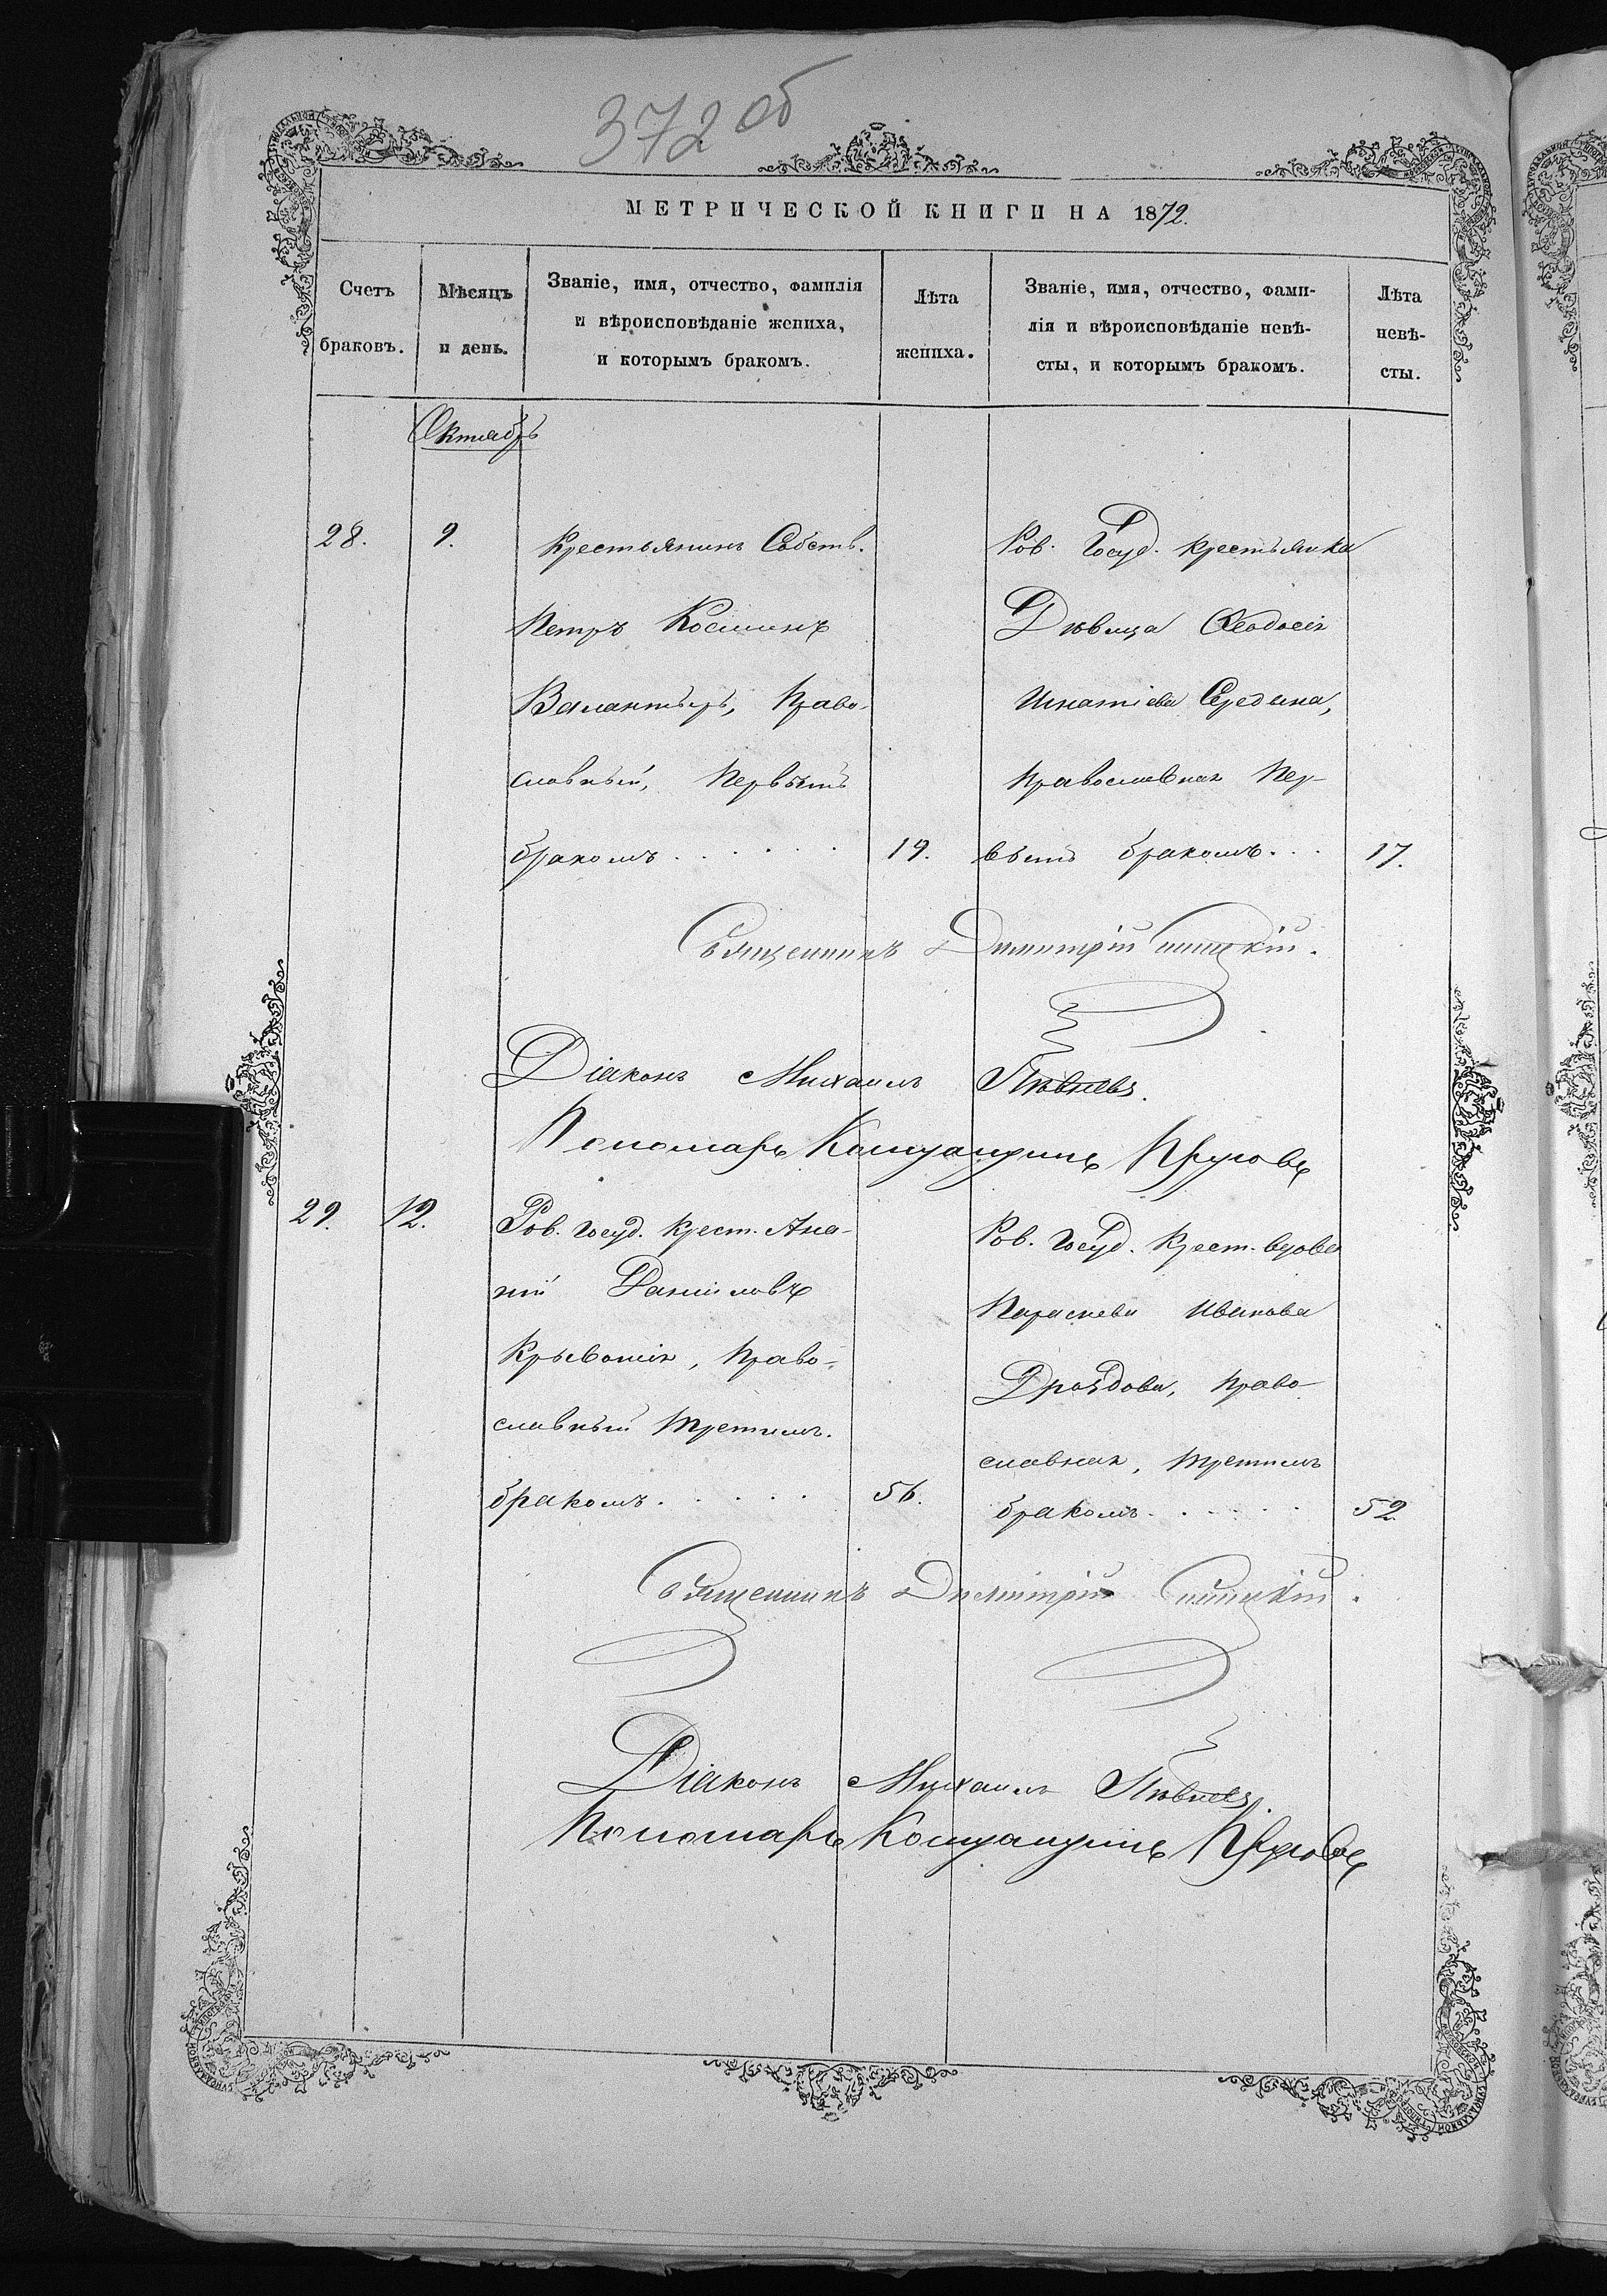 372 об
МЕТРИЧЕСКОЙ КНИГИ НА 1872.
Счетъ браковъ.
Мѣсяцъ и день.
Званіе, имя, отчество, фамилія
и вѣроисповѣданіе жениха,
и которымъ бракомъ.
Лѣта
жениха.
Званіе, имя, отчество, фами-
лія и вѣроисповѣданіе невѣ-
сты, и которымъ бракомъ.
Лѣта
невѣ-
сты.
Октябрь
28. 9.
Крестьянинъ Собств.
Петръ Косминъ
Валантырь, Право-
славный, Первымъ
бракомъ . . . . . . 19.
Ров. Госуд. крестьянка
Дѣвица Ѳеодосія
Игнатіева Середина,
Православная Пер-
вымъ бракомъ . . . 17.
Священникъ Димитрій
Діаконъ Михаилъ Пѣвневъ.
Пономарь Константинъ Круговъ
29. 12.
Ров. Госуд. Крест. Ана-
ній Даніиловъ
Крывошія, Право-
славный Третимъ.
бракомъ . . . . . 56.
Ров. Госуд. Крест. вдова
Параскева Иванова
Дроздова, Право-
славная, Третимъ
бракомъ . . . . . 52.
Священникъ Димитрій
Діаконъ Михаилъ Пѣвневъ.
Пономарь Константинъ Круговъ